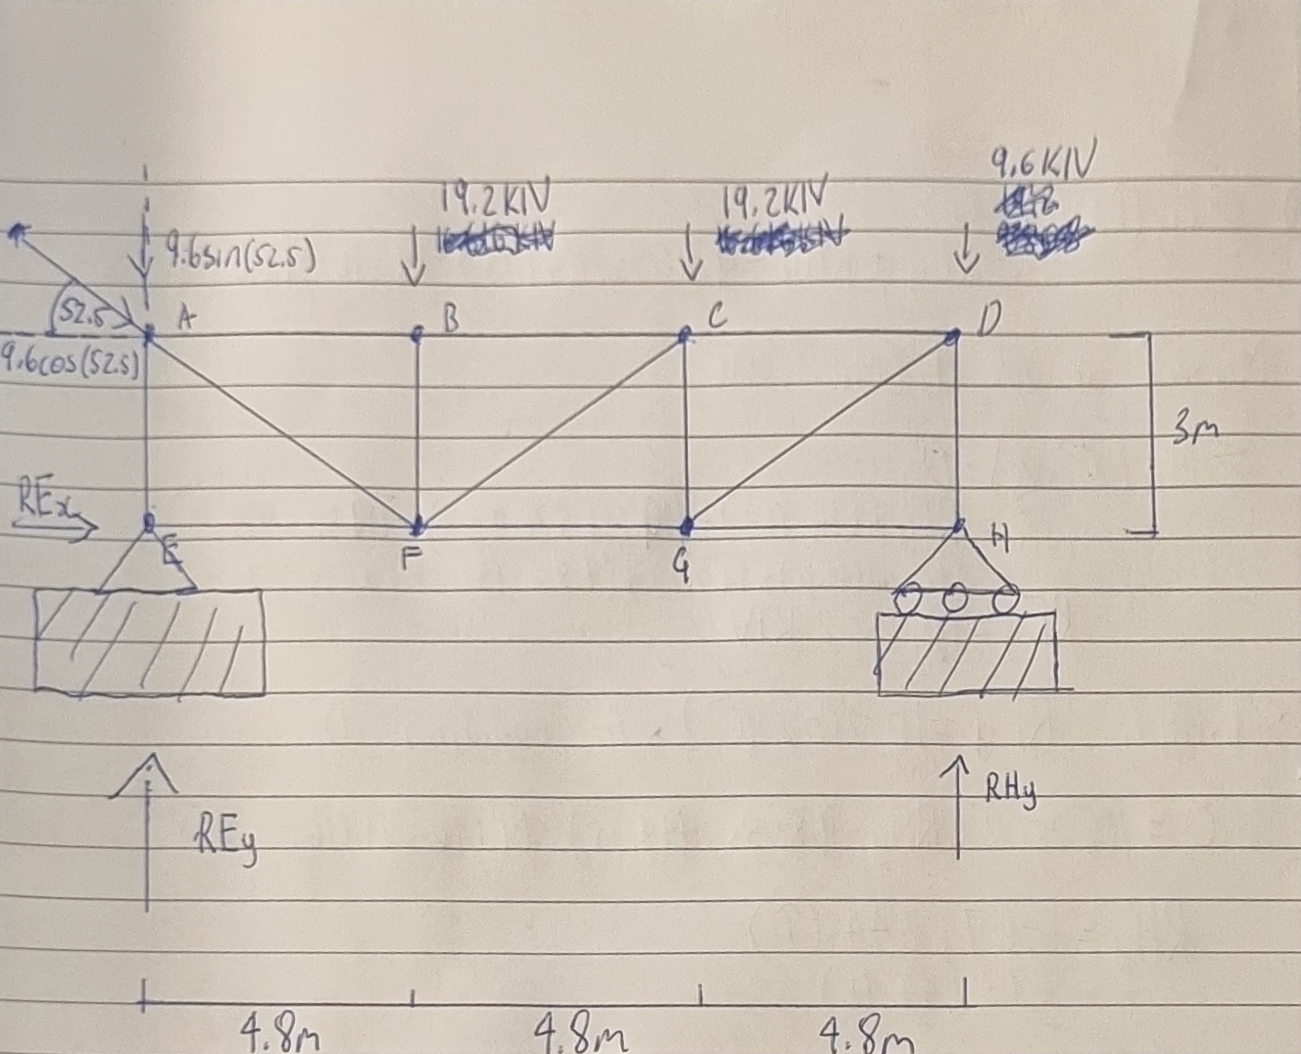 9.6KN
19.2KN
19.2KN
9.6sin(52.5)
52.5
A
B
C
D
9.6cos(52.5)
3m
REx
E
F
G
H
REy
RHy
4.8m
4.8m
4.8m